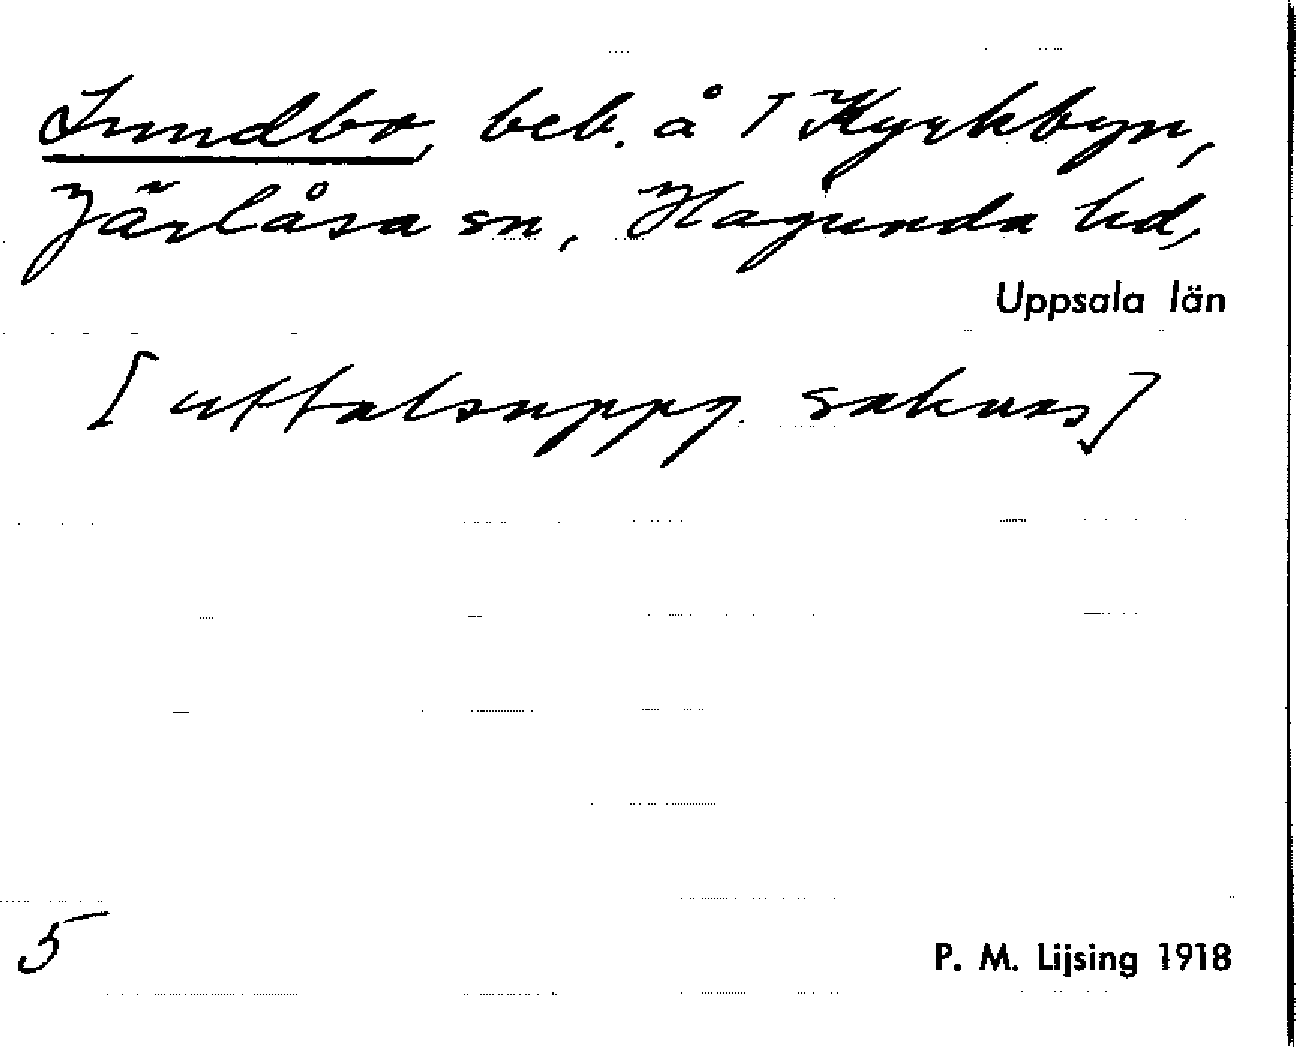 Lundbo, beb. å T Kyrkbyn,
Järlåsa sn, Hagunda hd,
Uppsala län
[uttalsuppg. saknas]
5
P. M. Lijsing 1918